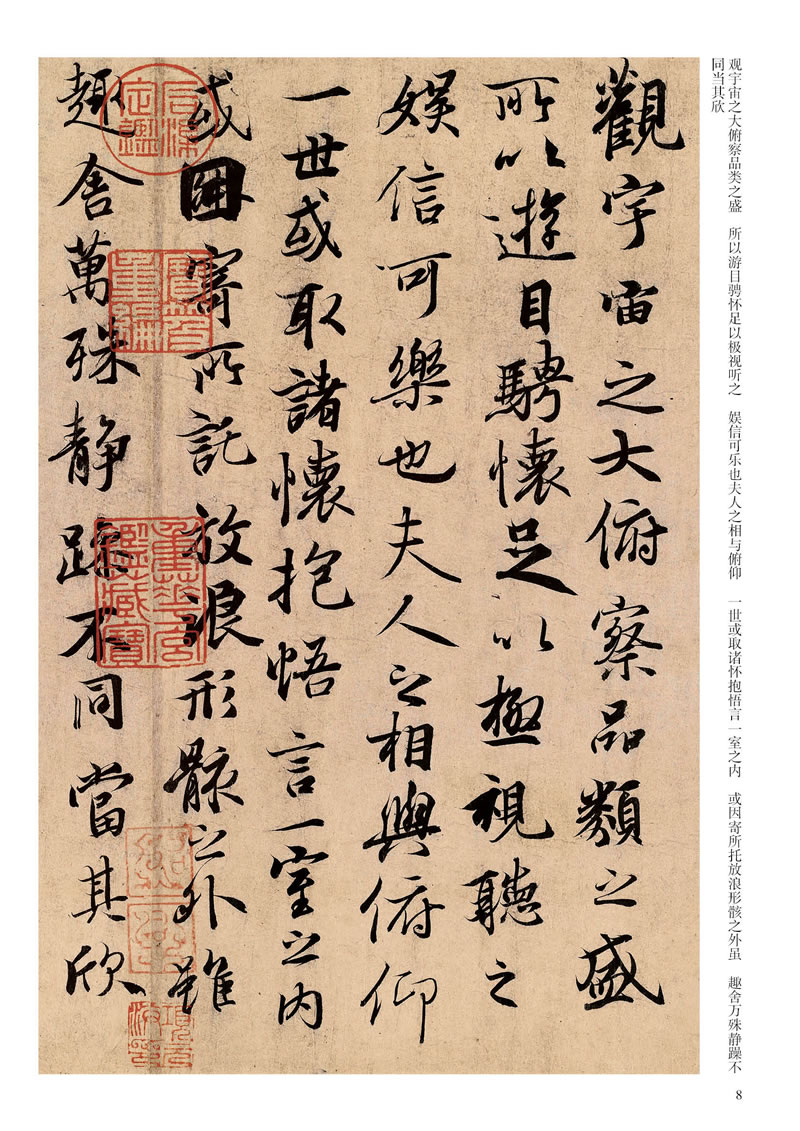 观宇宙之大俯察品类之盛　所以游目骋怀足以极视听之　娱信可乐也夫人之相与俯仰　一世或取诸怀抱悟言一室之内　或因寄所托放浪形骸之外虽　趣舍万殊静躁不
同当其欣
觀宇宙之大俯察品類之盛
所以遊目騁懷足以極視聽之
娛信可樂也夫人之相與俯仰
一世或取諸懷抱悟言一室之内
或因寄所託放浪形骸之外雖
趣舍萬殊静躁不同當其欣
石渠定鑑
寶笈重編
重華宮鑑藏寶
8